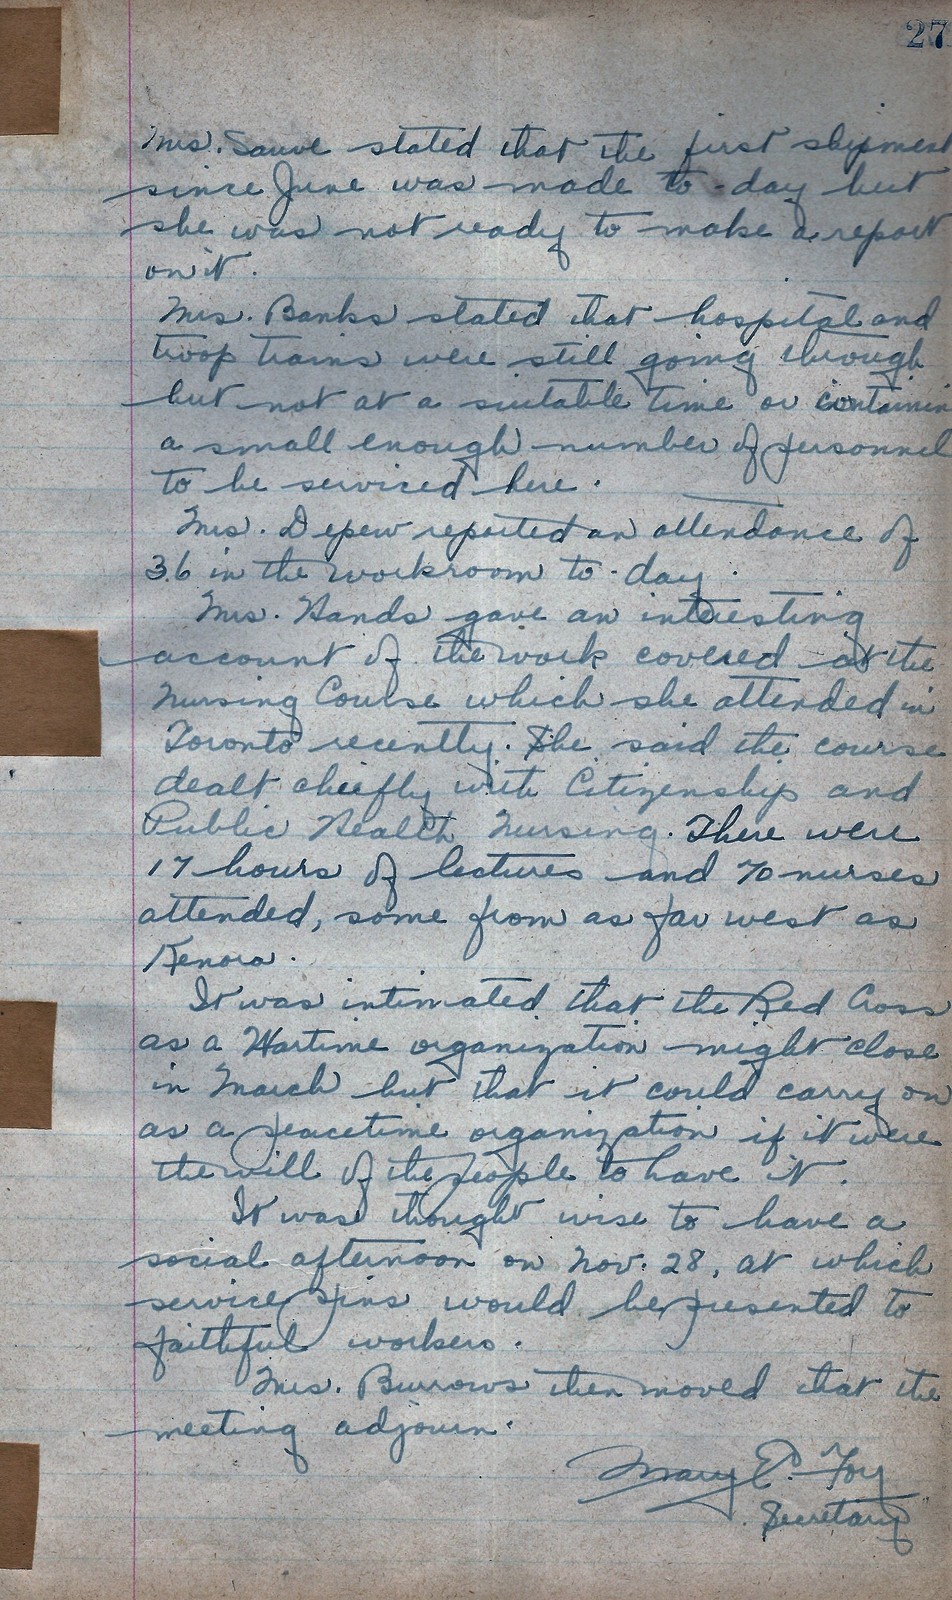 27
Mrs. Sauve stated that the first shipment
since June was made to-day but
she was not ready to make a report
on it.
Mrs. Banks stated that hospital and
troop trains were still going through
but not at a suitable time or containin
a small enough number of personnel
to be serviced here.
Mrs. Depew reported an attendance of
36 in the workroom to-day.
Mrs. Hands gave an interesting
account of the work covered at the
Nursing Course which she attended in
Toronto recently. She said the course
dealt chiefly with Citizenship and
Public Health Nursing. There were
17 hours of lectures and 70 nurses
attended, some from as far west as
Kenora.
It was intimated that the Red Cross
as a Wartime organization might close
in March but that it could carry on
as a peacetime organization if it were
the will of the people to have it.
It was thought wise to have a
social afternoon on Nov. 28, at which
service pins would be presented to
faithful workers.
Mrs. Burrows then moved that the
meeting adjourn.
Mary E. Foy
Secretary